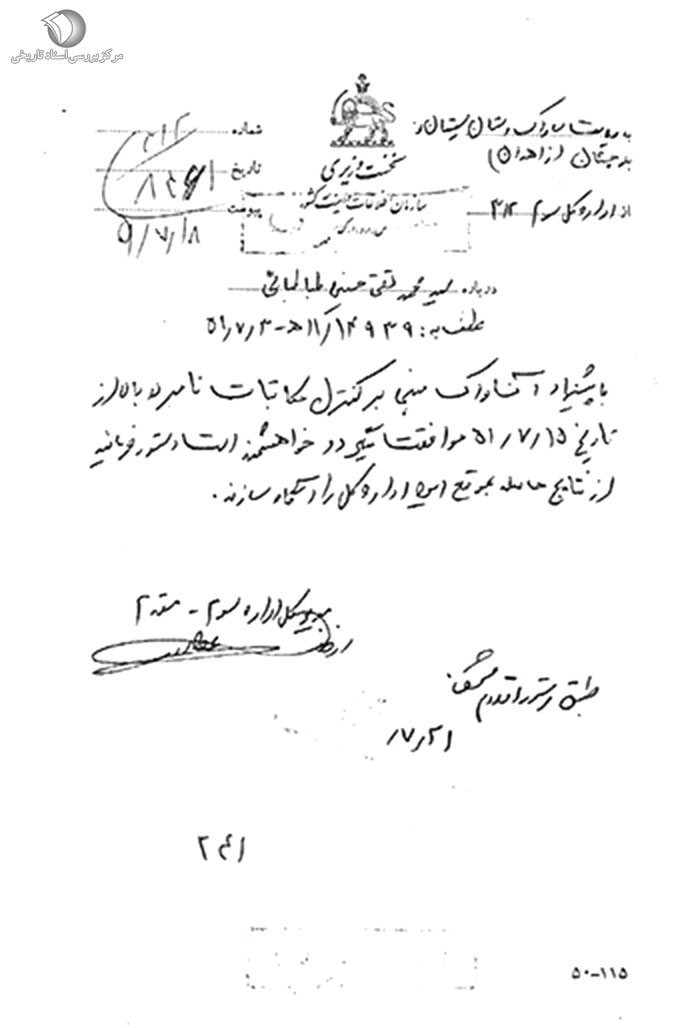 مرکز بررسی اسناد تاریخی
به ریاست ساواک استان سیستان و
بلوچستان (زاهدان)
از اداره کل سوم ۳۱۲
نخست وزیری
سازمان اطلاعات و امنیت کشور
شماره ۳۱۲/
تاریخ
پیوست
۵۱/۷/۸
درباره سید محمد تقی حسینی طباطبائی
عطف به: ۱۴۹۳۹/۱۱ﻫ - ۵۱/۷/۳
با پیشنهاد آن ساواک مبنی بر کنترل مکاتبات نامبرده بالا از
تاریخ ۵۱/۷/۱۵ موافقت میگردد خواهشمند است دستور فرمائید
از نتایج حاصله بموقع این اداره کل را آگاه سازند.
مدیرکل اداره سوم - مقدم
طبق دستور اقدام
۷/۲۱
۲۴۱
۵۰-۱۱۵